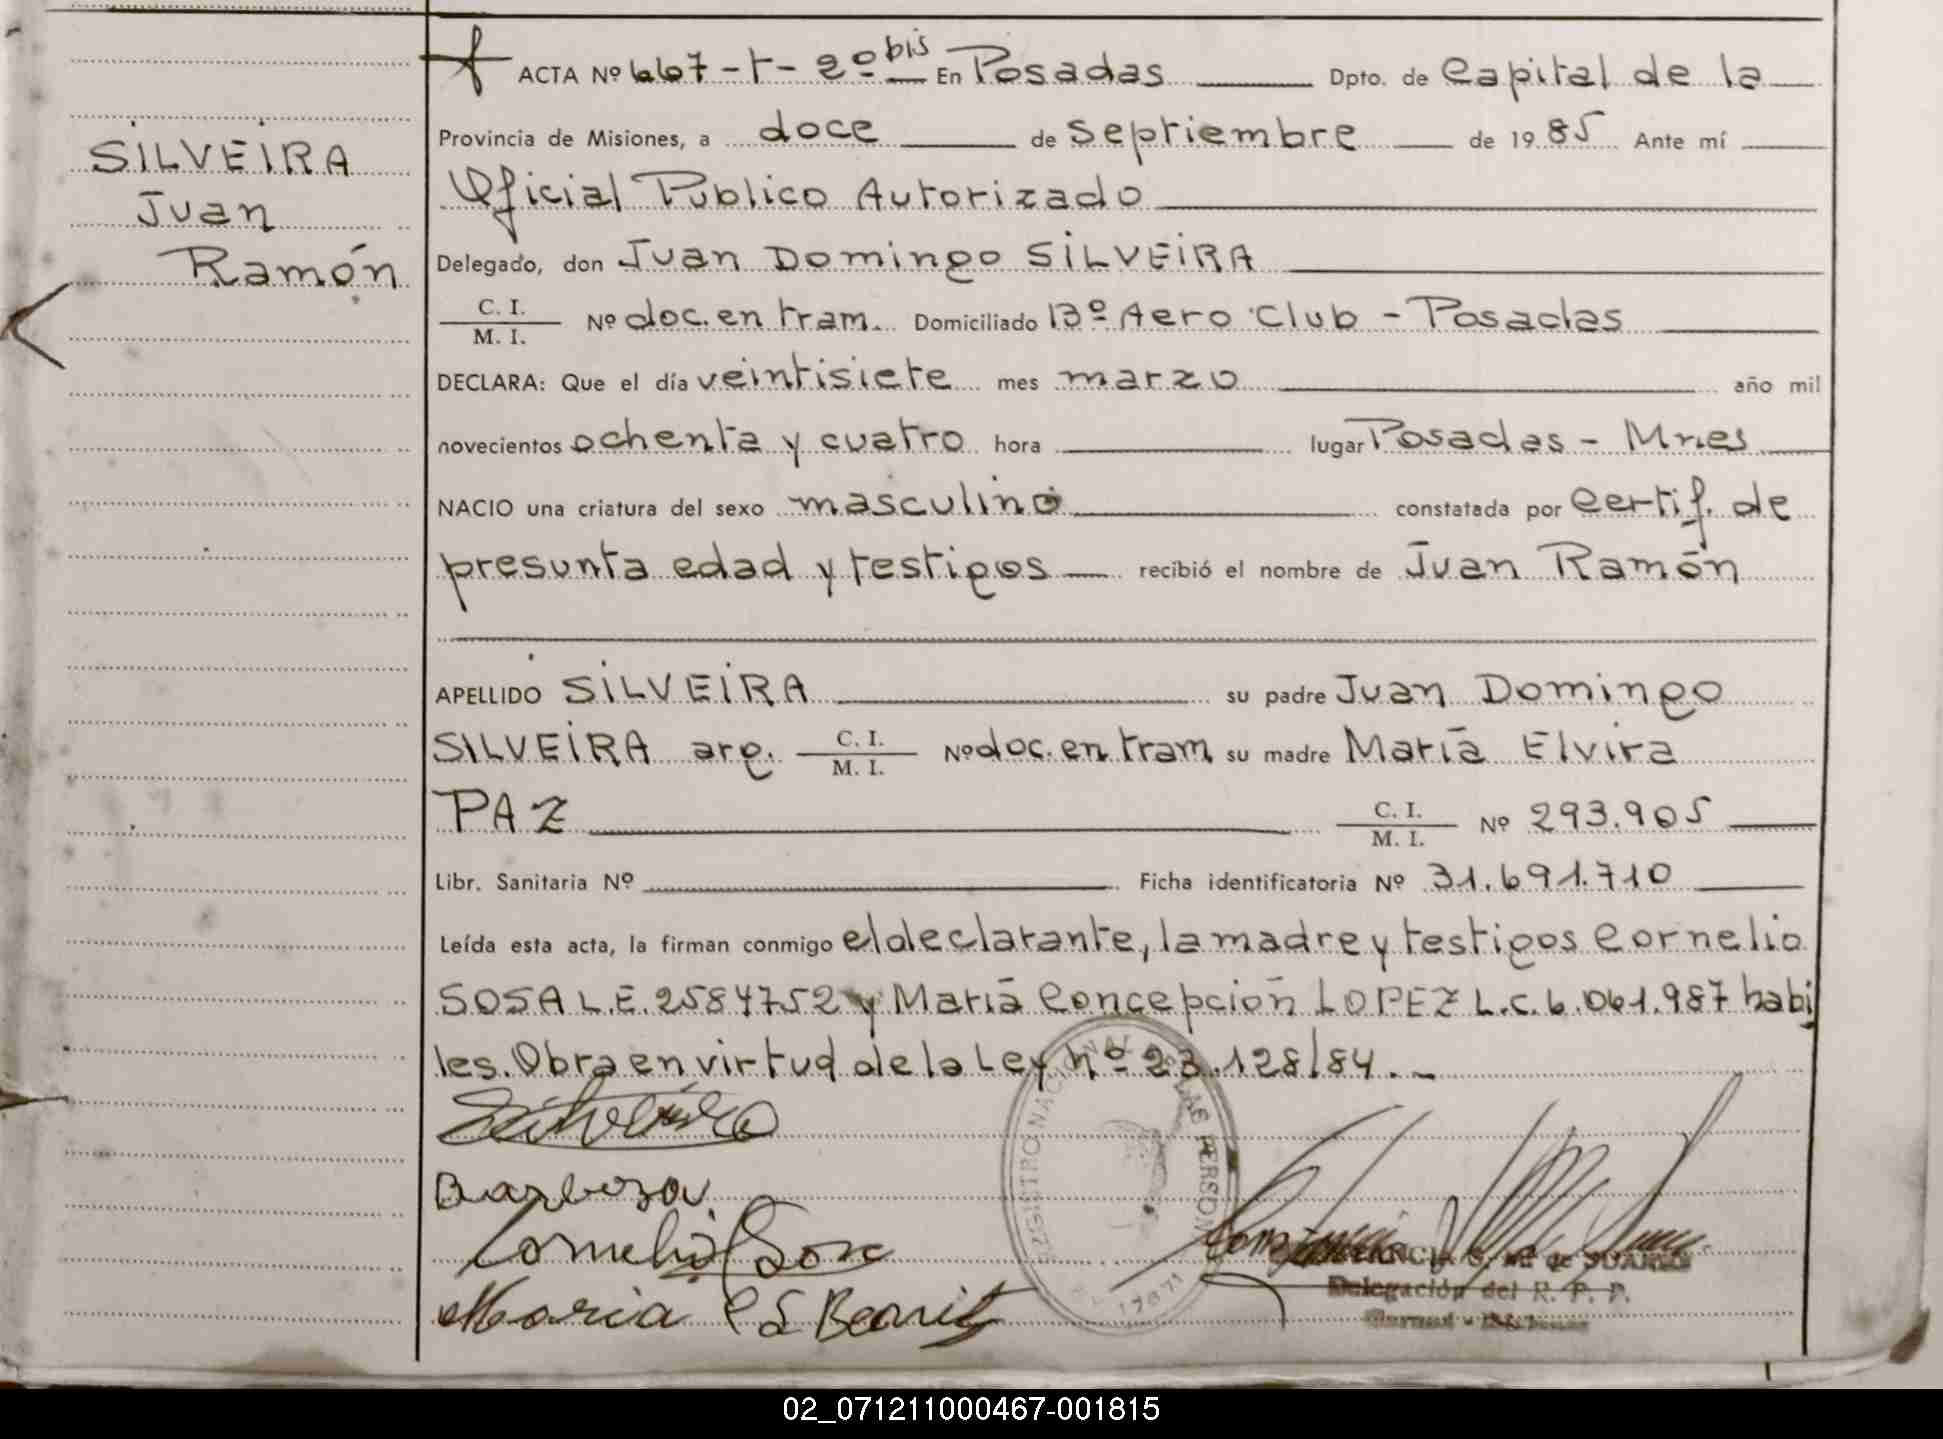 SILVEIRA
Juan
Ramón
ACTA Nº 667-t-2º bis En Posadas Dpto. de Capital de la
Provincia de Misiones, a doce de septiembre de 1985 Ante mí
Oficial Público Autorizado
Delegado, don Juan Domingo SILVEIRA
C. I.
M. I. Nº doc. en tram. Domiciliado 13º Aero Club - Posadas
DECLARA: Que el día veintisiete mes marzo año mil
novecientos ochenta y cuatro hora lugar Posadas - Mnes
NACIO una criatura del sexo masculino constatada por Certif. de
presunta edad y testigos recibió el nombre de Juan Ramón
APELLIDO SILVEIRA su padre Juan Domingo
SILVEIRA arg. C. I. M. I. Nº doc. en tram su madre María Elvira
PAZ C. I. M. I. Nº 293.905
Libr. Sanitaria Nº Ficha identificatoria Nº 31.691.710
Leída esta acta, la firman conmigo el declarante, la madre y testigos Cornelio
SOSA L.E. 2584752 y María Concepción LOPEZ L.C. 6.061.987 habi
les. Obra en virtud de la Ley nº 23.128/84.-
Silveira
Barboza
Cornelio Sosa
María C L Benit
REGISTRO NACIONAL DE LAS PERSONAS
LEY 17671
de SUAREZ
Delegación del R. P. P.
02_071211000467-001815